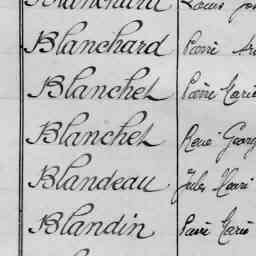 Blanchard Louis
Blanchard Pierre
Blanchet Pierre Marie
Blanchet René Georg
Blandeau Jules Henri
Blandin Pierre Marie